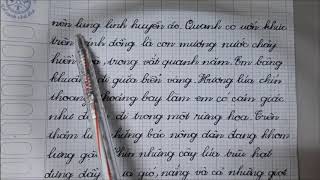 nên lung linh huyền ảo. Quanh co uốn khúc
trên cánh đồng là con mương nước chảy
hiền hòa, trong vắt quanh năm. Em bâng
khuâng đi giữa biển vàng. Hương lúa chín
thoang thoảng bay làm em có cảm giác
như đang đi trong một rừng hoa. Trên
thảm lúa những bác nông dân đang khom
lưng gặt những cây lúa trĩu hạt
đung đưa gió, nắng và cả những giọt